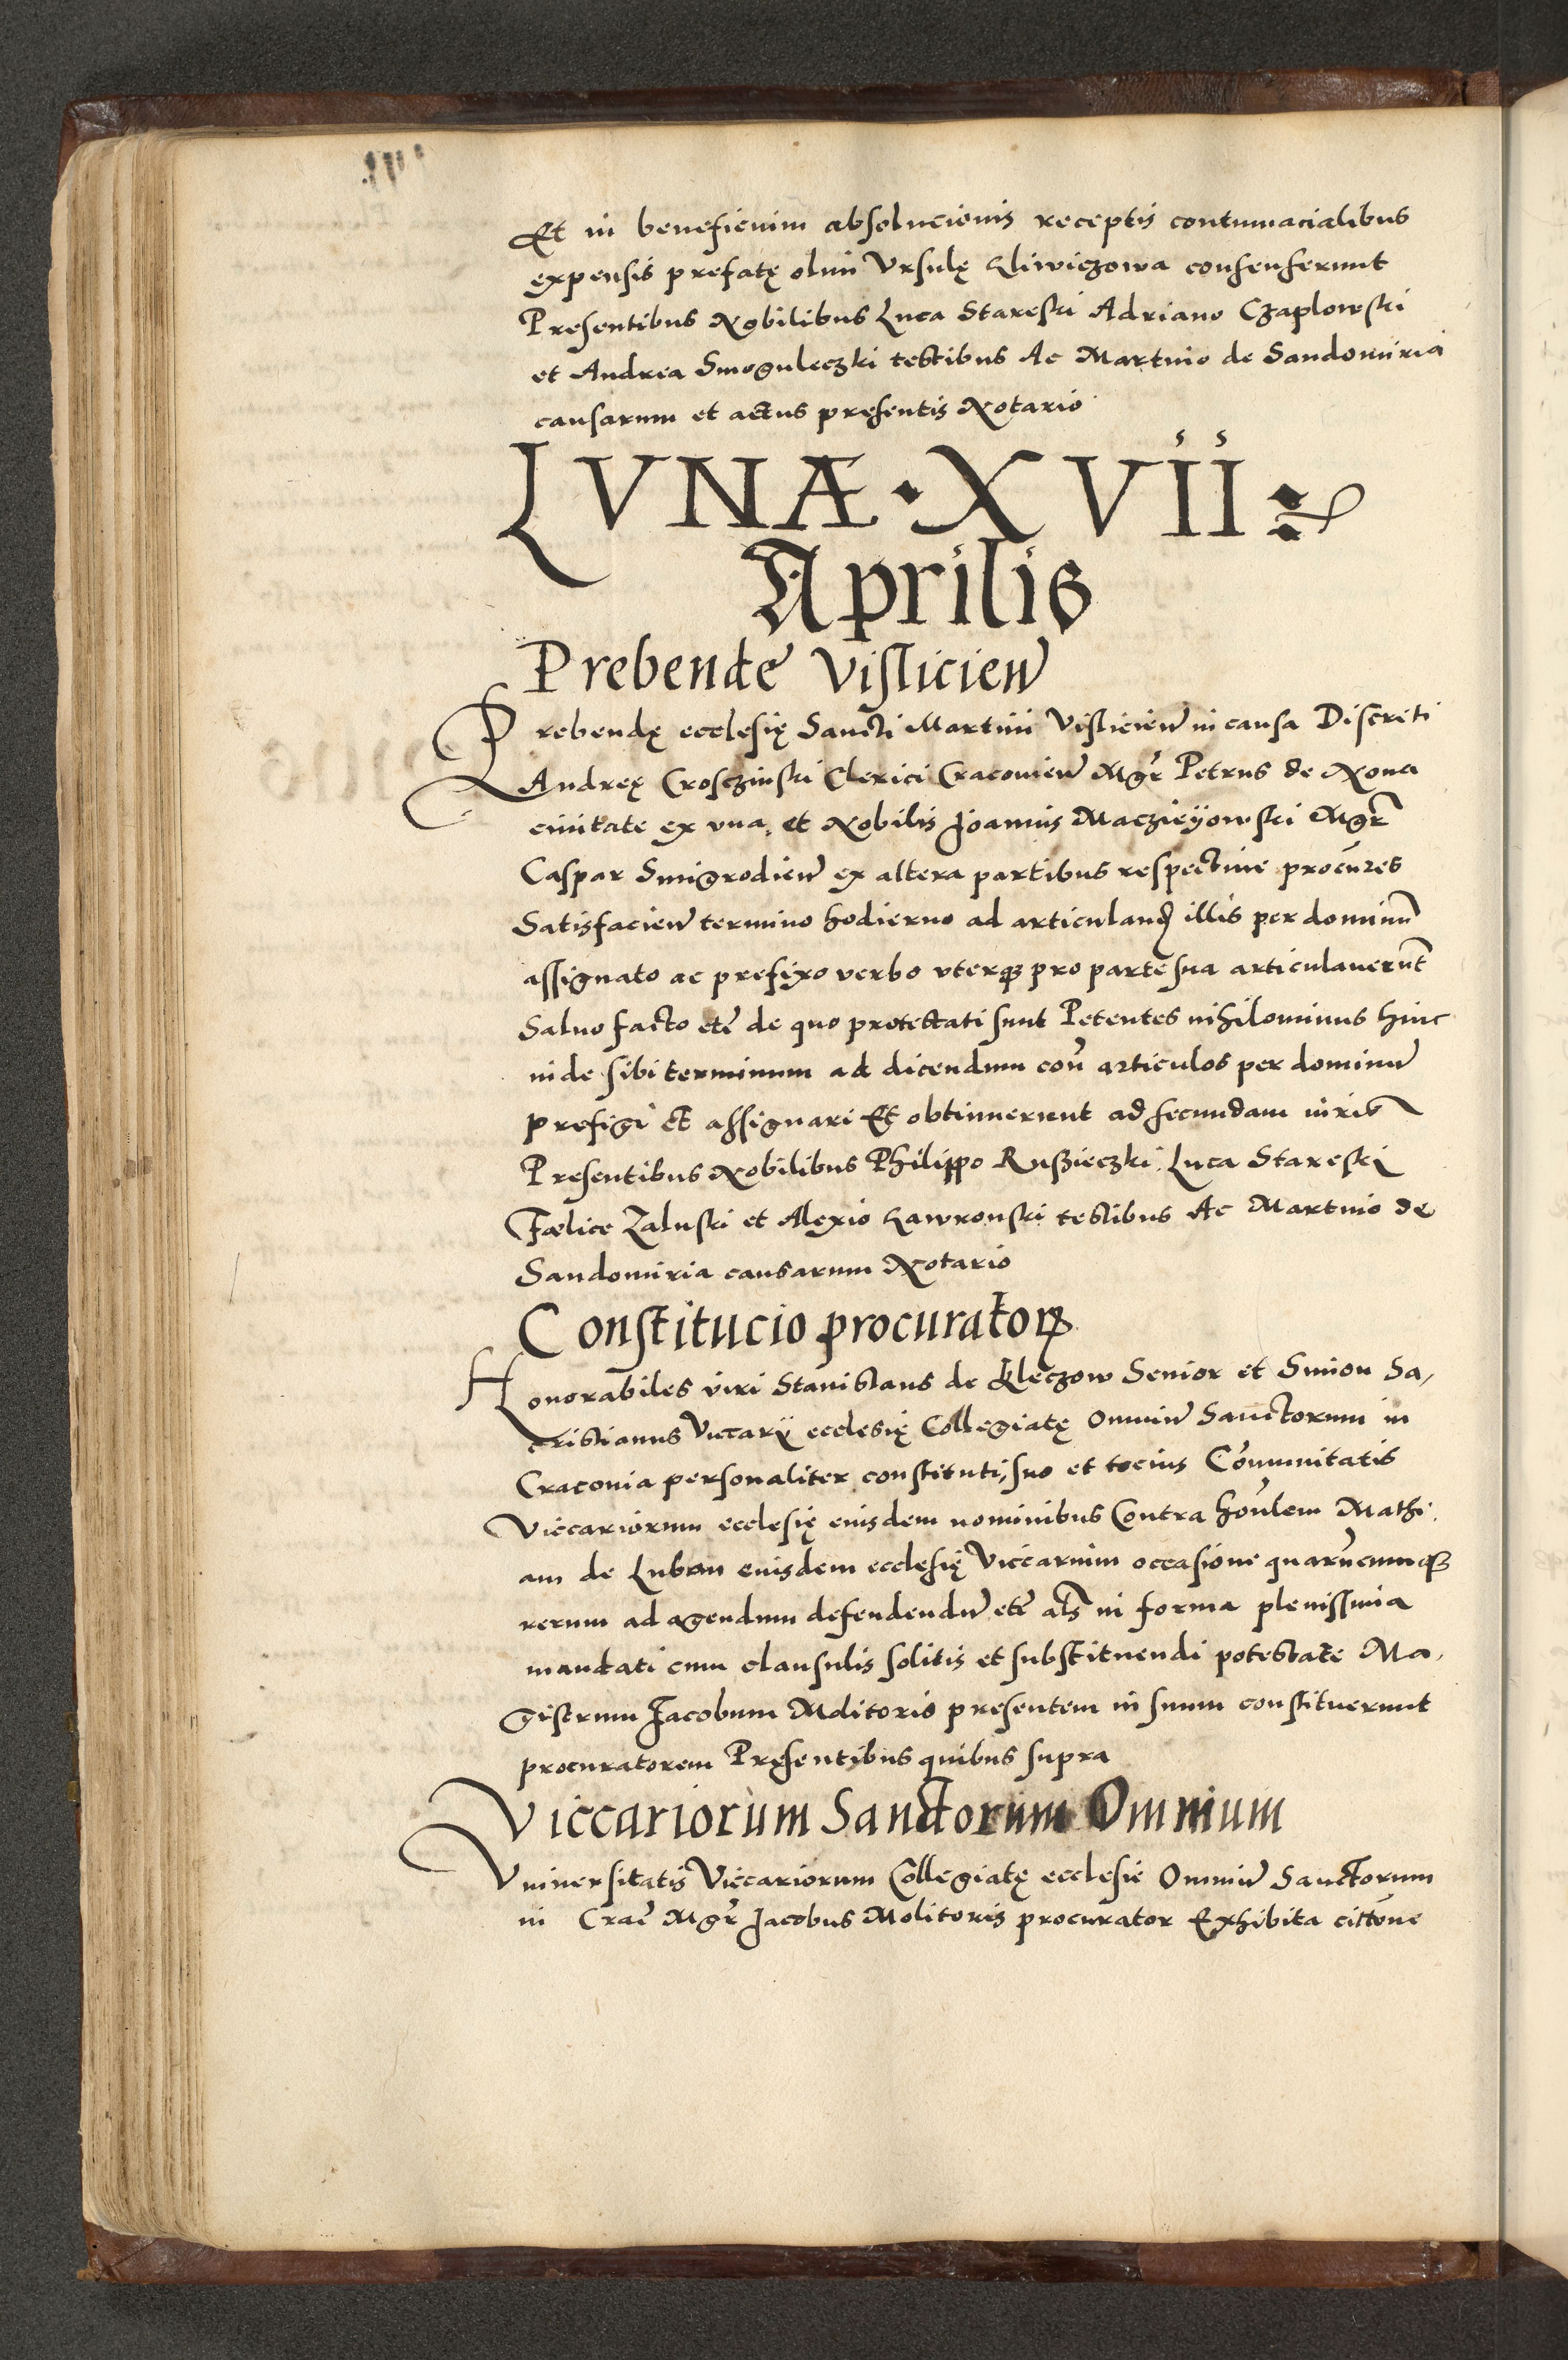 Et in beneficium absolucionis receptis contumacialibus
expensis prefatę olim Vrsulę Kliwiczowa consenserunt
Presentibus Nobilibus Luca Stareski Adriano Czaplowski
et Andrea Smoguleczki testibus Ac Martino de Sandomiria
causarum et actus presentis Notario
LVNÆ · XVII
Aprilis
Prebende Vislicien̄
Prebendę ecclesię Sancti Martini Vislicien̄ in causa Discreti
Andreę Crosczinski Clerici Cracovien̄ Mgr̄ Petrus de Noua
ciuitate ex vna, et Nobilis Joannis Macziejowski Mgr̄
Caspar Smigrodien̄ ex altera partibus respectiue procūres
Satisfacien̄ termino hodierno ad articuland̄ illis per dominū
assignato ac prefixo verbo vterqꝫ pro parte sua articulauerūt
Saluo facto etc̄ de quo protestati sunt Petentes nihilominus hinc
inde sibi terminum ad dicendum con̄ articulos per dominū
prefigi et assignari Et obtinuerunt ad secundam iurid̄
Presentibus Nobilibus Philippo Rusieczki, Luca Stareski
Fælice Zaluski et Alexio Gawronski testibus Ac Martino de
Sandomiria causarum Notario
Constitucio procuratorꝝ
Honorabiles viri Stanislaus de Kleczow Senior et Simon Sa,
cristianus Viccarij ecclesię Collegiatę Omniū Sanctorum in
Cracouia personaliter constituti, suo et tocius Cōmunitatis
Viccariorum ecclesię eiusdem nominibus Contra hon̄lem Mathi,
am de Lubau eiusdem ecclesię Viccarium occasione quarūcumqꝫ
rerum ad agendum defendendū etc̄ als̄ in forma plenissima
mandati cum clausulis solitis et substituendi potestate Ma,
gistrum Jacobum Molitoris presentem in suum constituerunt
procuratorem Presentibus quibus supra
Viccariorum Sanctorum Omnium
Vniuersitatis Viccariorum Collegiatę ecclesie Omniū Sanctorum
in Crac̄ Mgr̄ Jacobus Molitoris procurator Exhibita cittōne